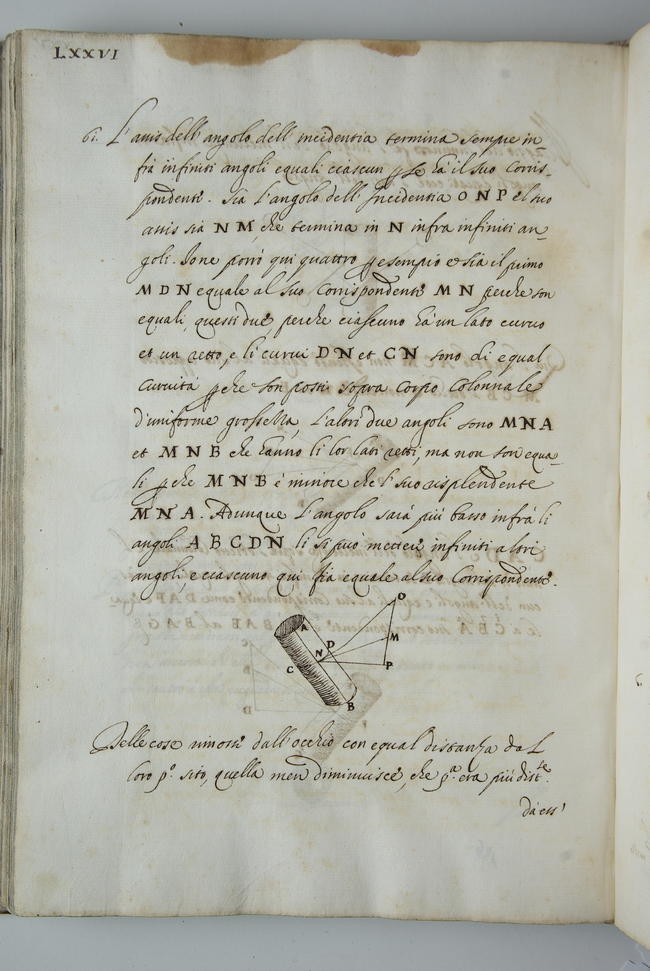 LXXVI
61. L'assis dell'angolo dell'incidentia termina sempre in-
frà infiniti angoli equali ciascun p se hà il suo corris-
pondente. Sià l'angolo dell'Incidentia O N P el suo
assis sià N M che termina in N infra infiniti an-
goli. Ione porrò qui quattro p esempio e sià il primo
M D N equale al suo Corrispondente M N perche son
equali, questi due, perche ciascuno hà un lato curvo
et un retto, e li curvi D N et C N sono di equal
curvità p che son posti sopra corpo Colonnale
d'uniforme grossezza, L'altri due angoli sono M N A
et M N B che hanno li lor lati retti, ma non son equa-
li p che M N B è minore che l'suo risplendente
M N A. Adunque L'angolo sarà più basso infrà li
angoli A B C D N li si può mettere infiniti altri
angoli, e ciascuno qui fia equale al suo Corrispondente.
O
A
M
D
N
C
P
B
Delle cose rimosse dall'occhio con equal distanza dal
loro p.º sito, quella men diminuisce, che p.ª era più dist.te
da ess'